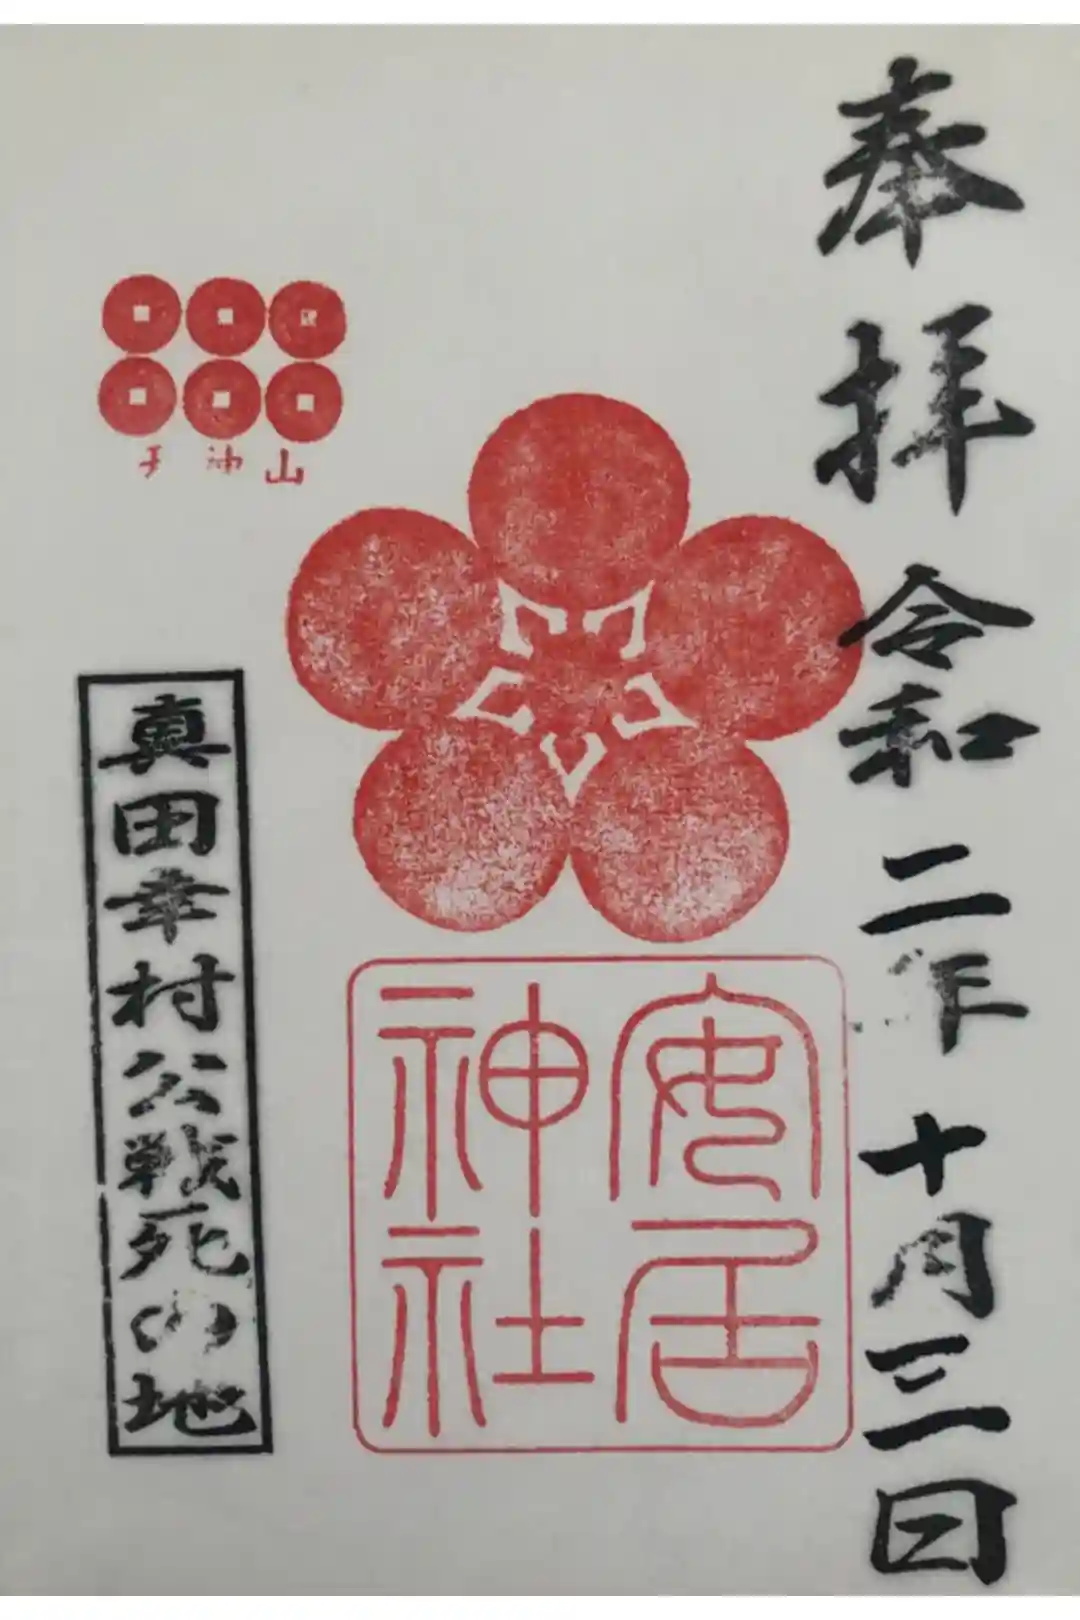 奉拝 令和二年 十月三日
安居
神社
天神山
真田幸村公戦死の地